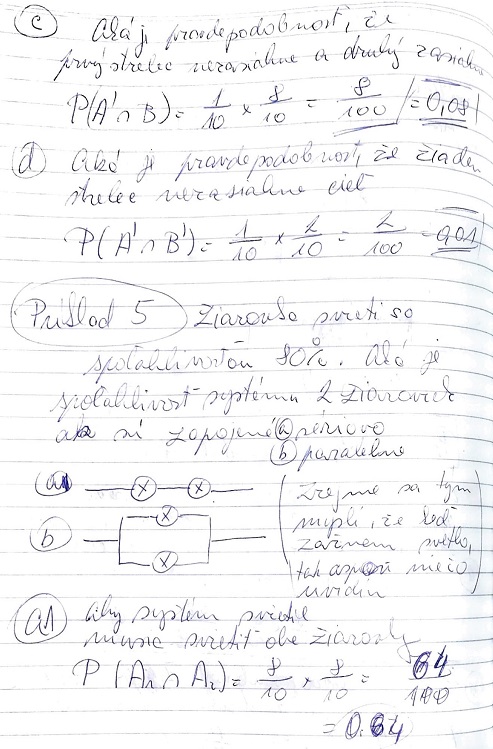 c Aká j pravdepodobnosť, že
prvý strelec nezasiahne a druhý zasiahne
P(A' ∩ B) = 1/10 × 8/10 = 8/100 = 0,08
d Aká je pravdepodobnosť, že žiaden
strelec nezasiahne cieľ
P(A' ∩ B') = 1/10 × 2/10 = 2/100 = 0,01
Príklad 5 Žiarovka svieti so
spoľahlivosťou 80%. Aká je
spoľahlivosť systému 2 žiaroviek
ak sú zapojené a sériovo
b paralelne
a
b
(Zrejme sa tým
myslí, že keď
zažnem svetlo,
tak aspoň niečo
uvidím)
a1 aby systém svietil
musia svietiť obe žiarovky
P (A1 ∩ A2) = 8/10 × 8/10 = 64/100
= 0.64